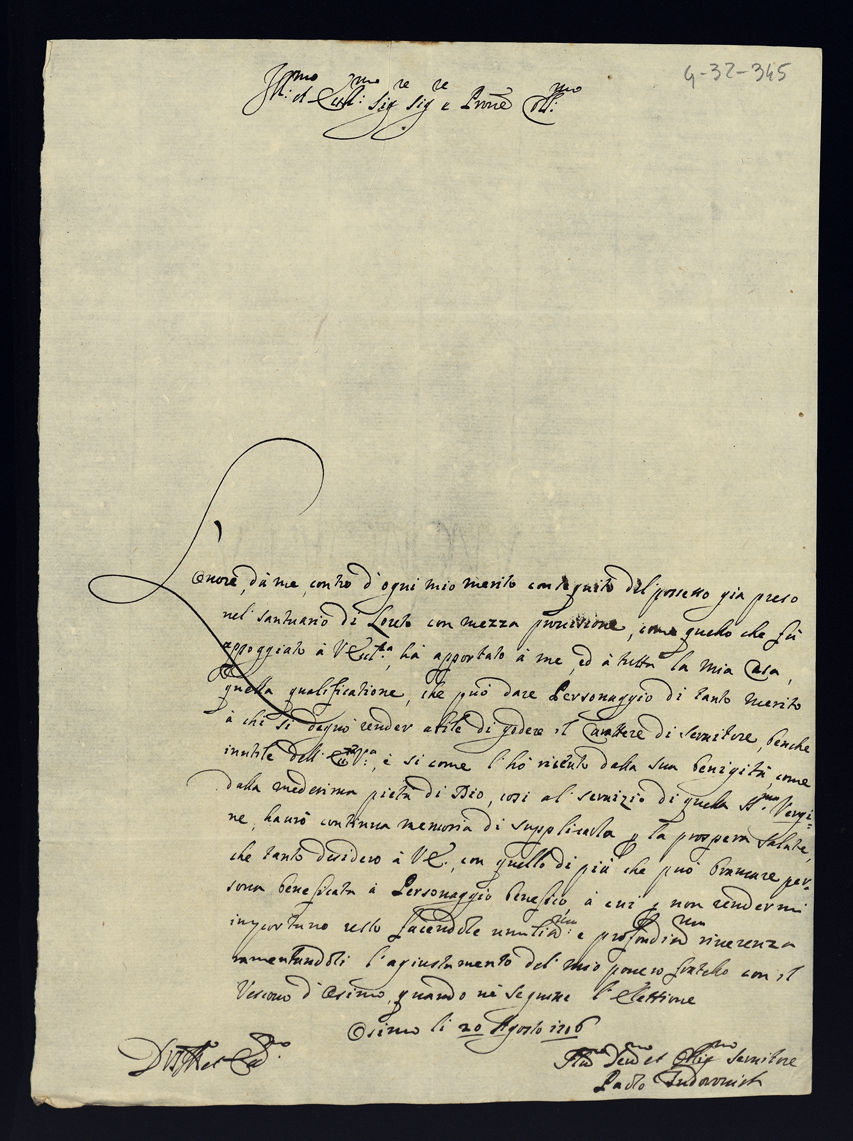 4-32-345
Ill:mo et Ecc:mo Sig.re Sig.re e Prone Coll:mo
L'Onore, dà me, contro d'ogni mio merito conseguito del possesso già preso
nel santuario di Loreto con mezza provisione, come quello che fù
appoggiato à V.Ecc.za, hà apportato à me, ed à tutta la mia Casa,
quella qualificatione, che può dare Personaggio di tanto merito
à chi si degnò render abile di godere il Carattere di servitore, benche
inutile dell' , e si come l'hò riceuto dalla sua benigità, come
dalla medesima pietà di Dio, così al servizio di quella SS.ma Vergi-
ne, haurò continua memoria di supplicarla p la prospera salute,
che tanto desidero à V.E., con quello di più che può bramare per-
sona beneficata à Personaggio benefico à cui p non rendermi
importuno resto facendole umiliss:ma e profondiss:ma riverenza
ramentandoli l'agiustamento del mio povero fratello con il
Vescovo d'Osimo, quando nè seguisse l'elettione
Osimo li 20 Agosto 1706
D V Ill:
Hu:mo Dev:mo et Oblig:mo Servitore
Paolo